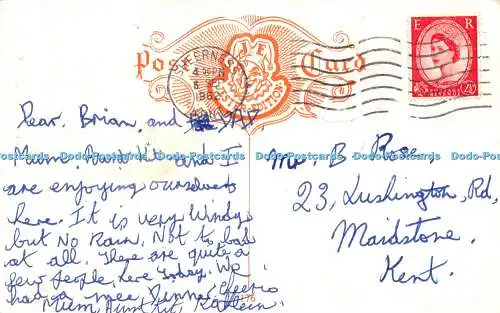 Post Card
J.E.
JESTER EDITION
SHEERNESS
4 PM
196
KENT
E R
POSTAGE
2½
Dear Brian, and
Mum, Aunt Kit and I
are enjoying ourselves
here. It is very windy
but No Rain. Not to bad
at all. There are quite a
few people here Today. We
had a nice Dinner, Cheerio
Mum, Aunt Kit, Kathleen.
Mr. B Rose,
23, Lushington, Rd,
Maidstone.
Kent.
Postcards Dodo-Postcards Dodo-Postcards Dodo-Postcards Dodo-Postcards Dodo-Postcards
76